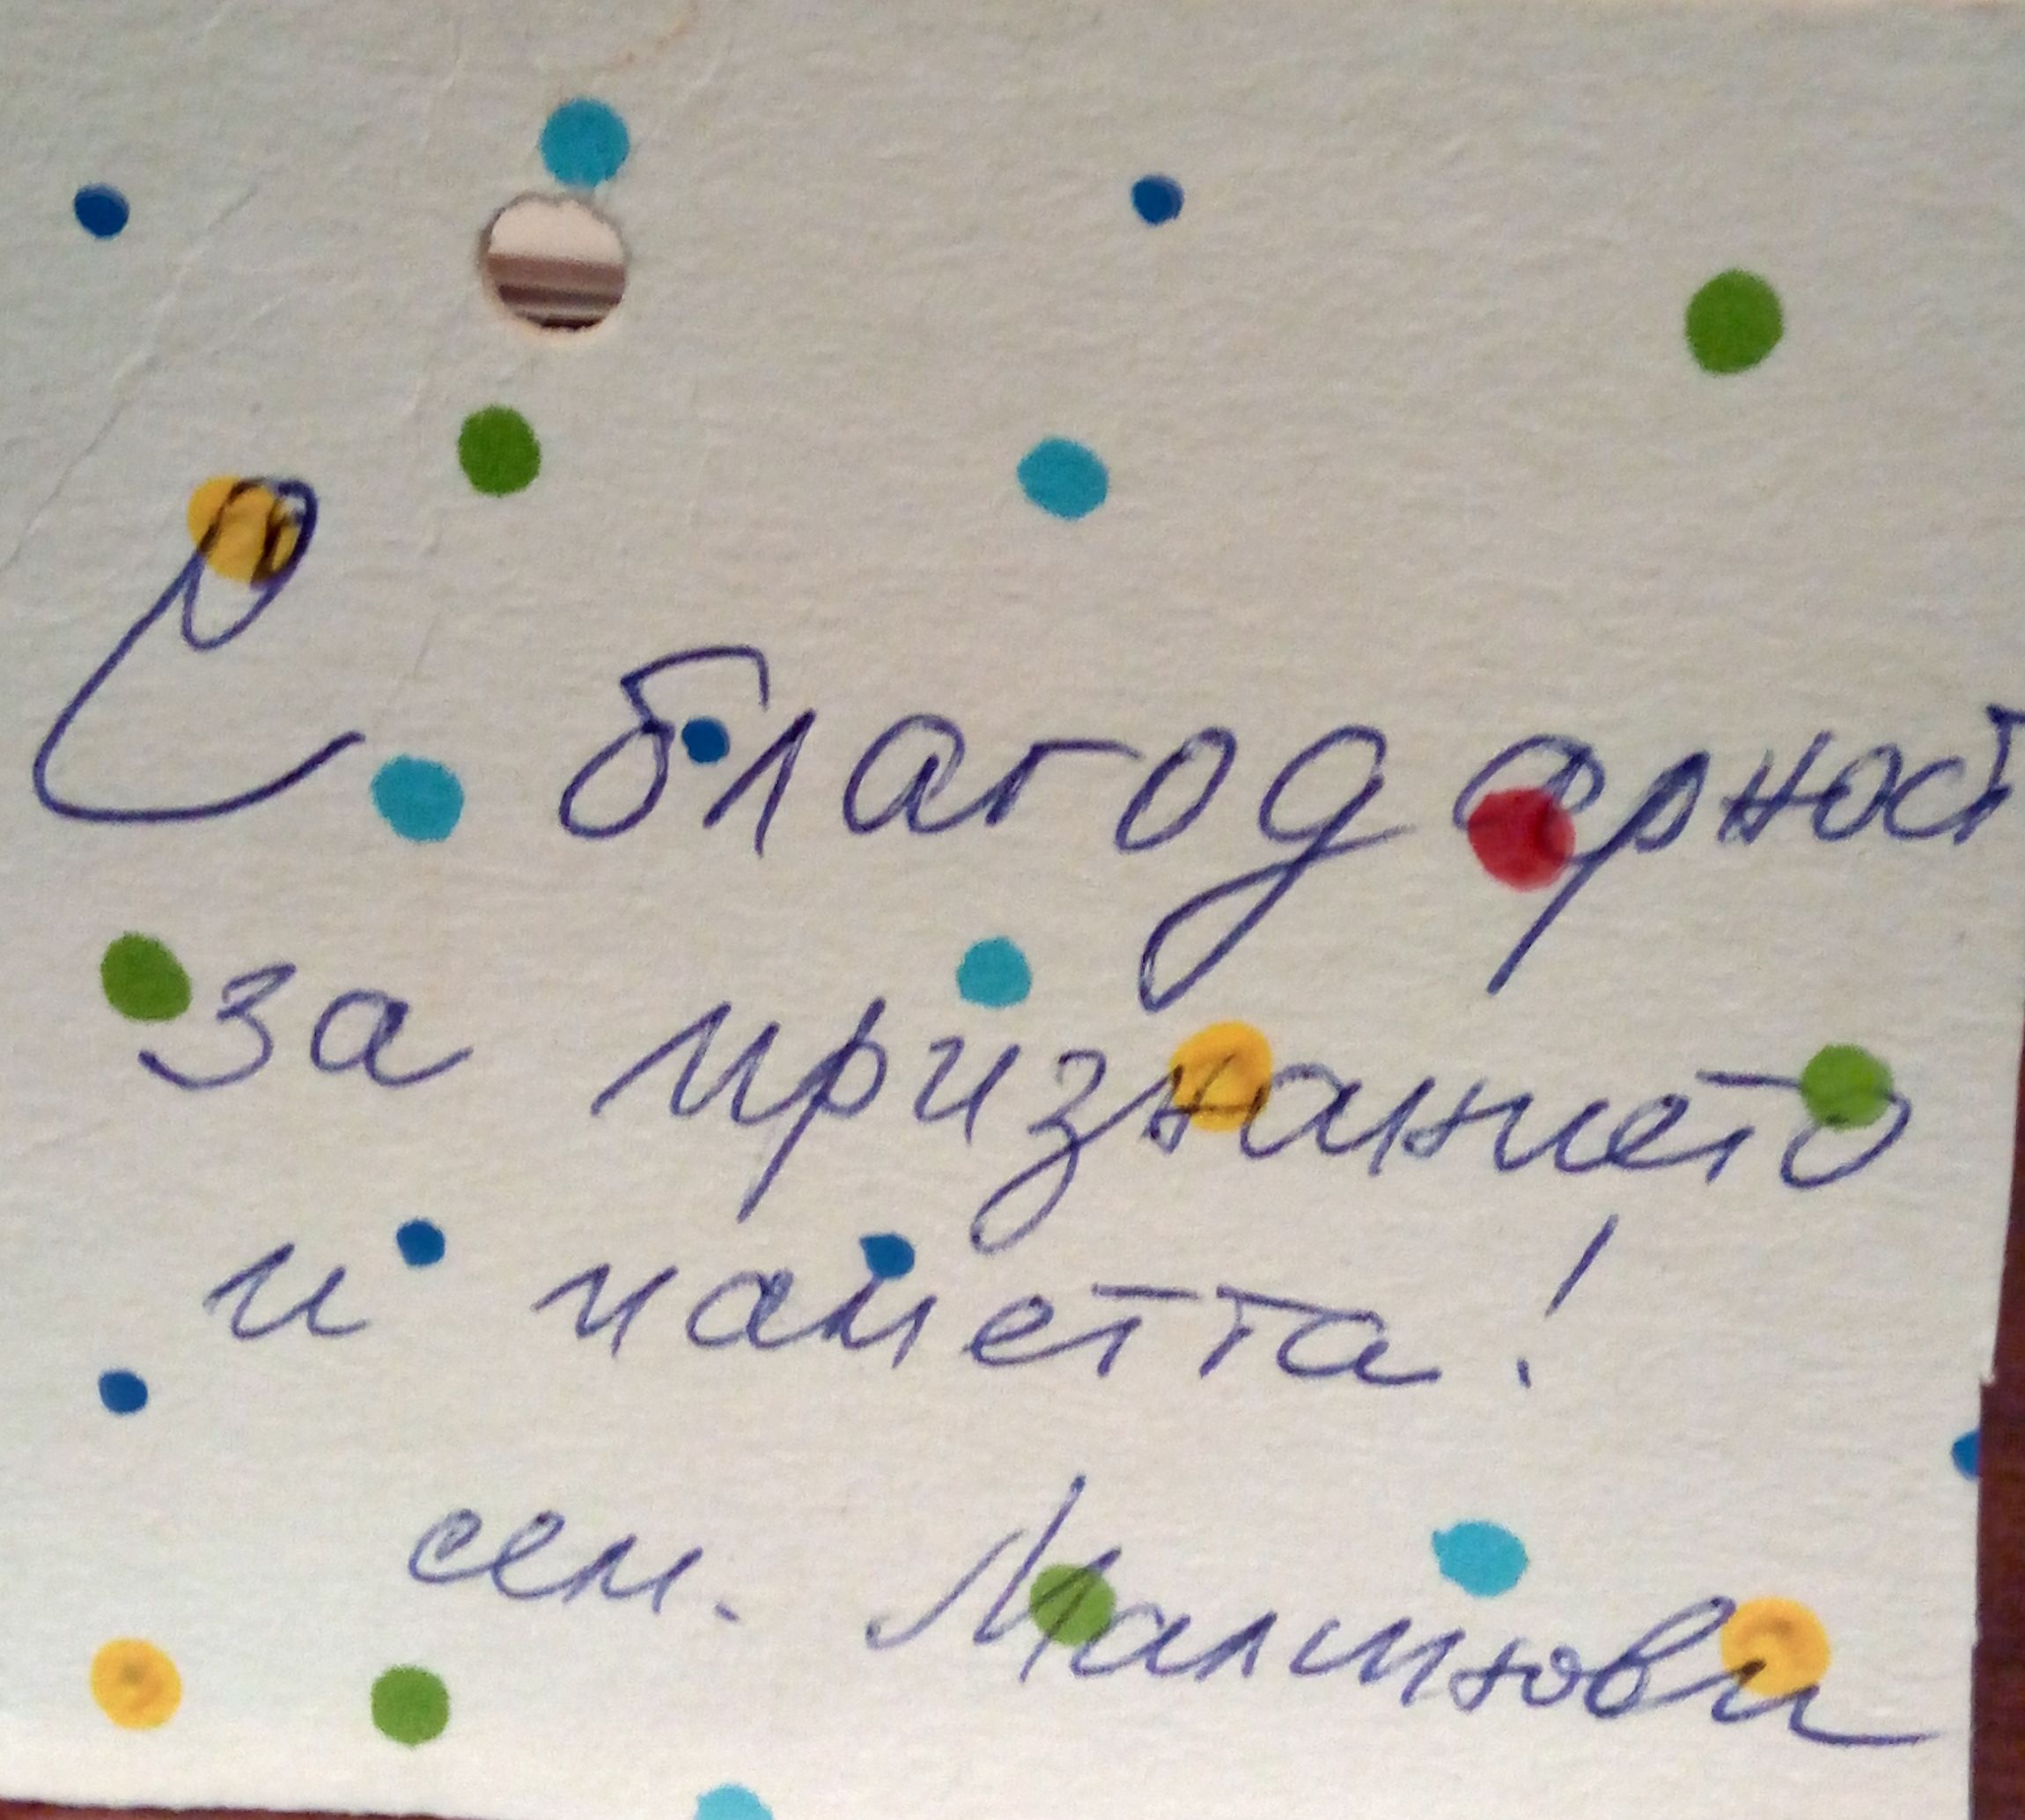 С благодарност
за признанието
и паметта!
сем. Малинови